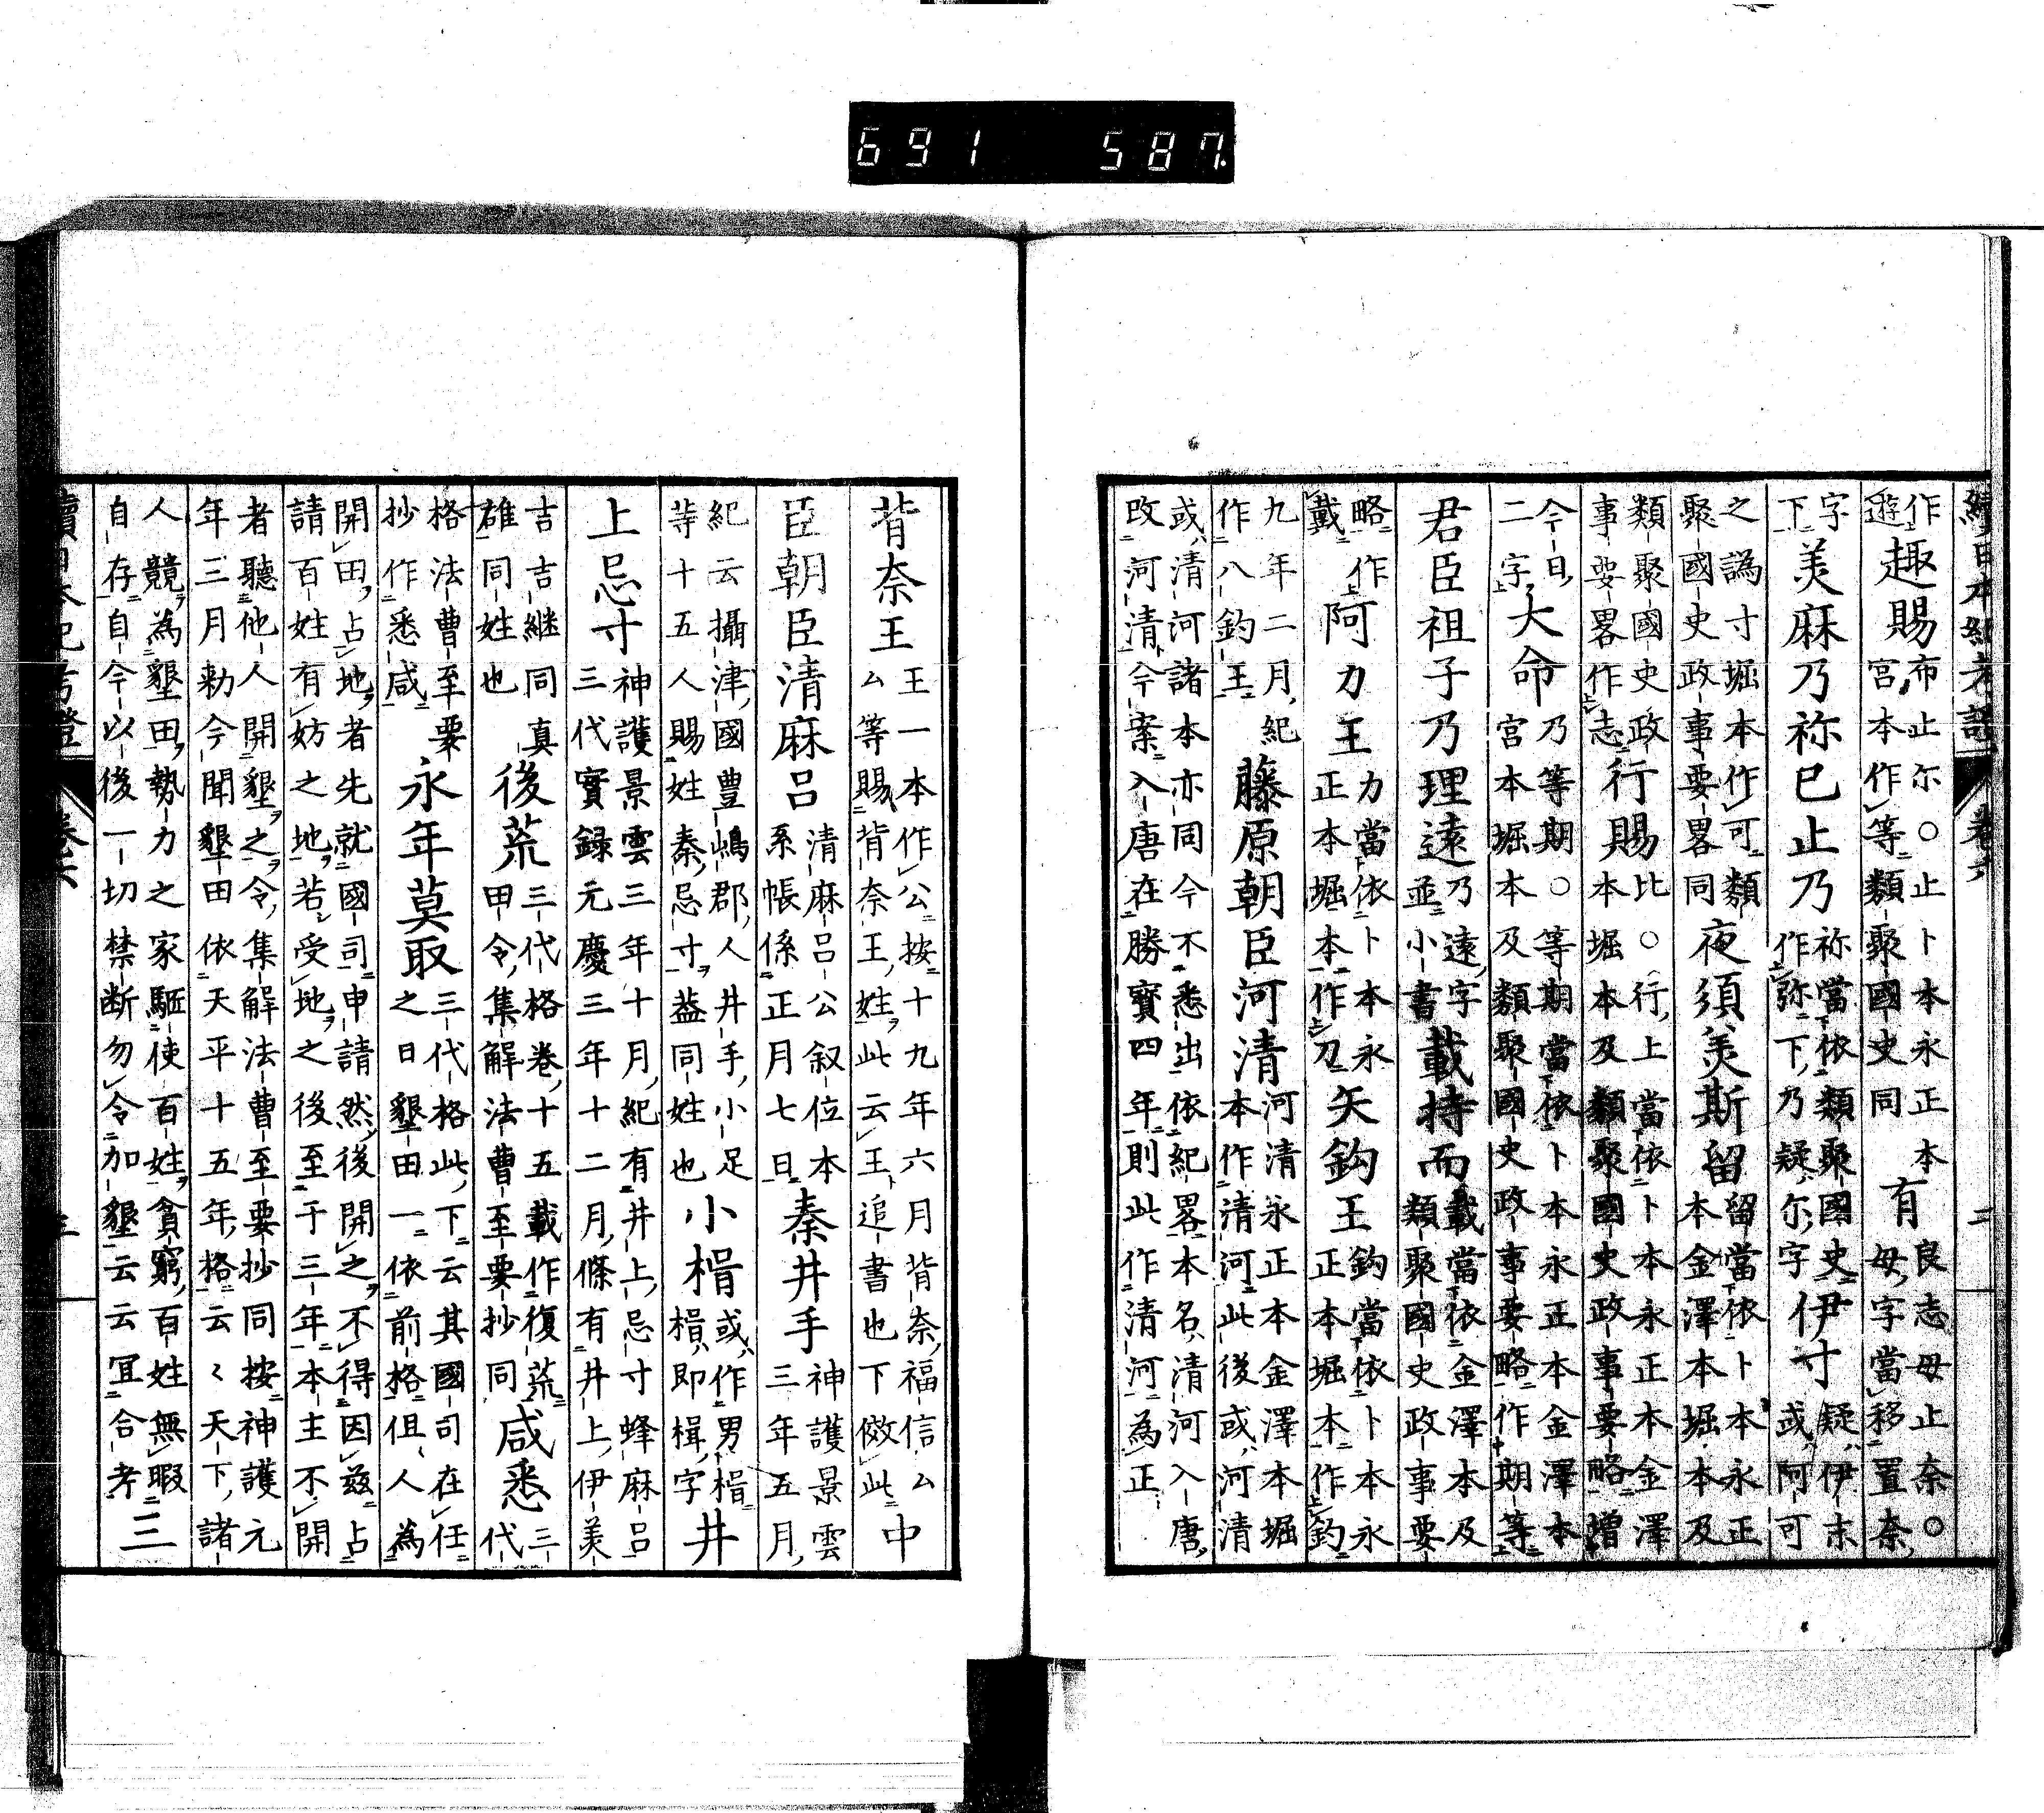 691 587
續日本紀考證 卷六 二
作遊趣賜布止尔○止卜本永正本宮本作等類聚國史同有良志母止奈○母字當移置奈
字下美麻乃祢已止乃祢當依類聚國史作弥下乃疑尓字伊寸疑伊末或阿可
之譌寸堀本作可類聚國史政事要畧同夜須美斯留留當依卜本永正本金澤本堀本及
類聚國史政事要畧作志行賜比○行上當依卜本永正本金澤本堀本及類聚國史政事要略增
今日二字大命乃等期○等期當依卜本永正本金澤本宮本堀本及類聚國史政事要略作期等
君臣祖子乃理遠乃遠字並小書載持而載當依金澤本及類聚國史政事要
略作戴阿力王力當依卜本永正本堀本作刀矢鈎王鈎當依卜本永正本堀本作釣
九年二月紀作八釣王藤原朝臣河清河清永正本金澤本堀本作清河此後或河清
或清河諸本亦同今不悉出依紀畧本名清河入唐改河清今案入唐在勝寶四年則此作清河為正
背奈王王一本作公按十九年六月背奈福信厶厶等賜背奈王姓此云王追書也下傚此中
臣朝臣清麻呂清麻呂公叙位本系帳係正月七日秦井手神護景雲三年五月
紀云攝津國豊嶋郡人井手小足等十五人賜姓秦忌寸葢同姓也小楫或作男楫楫即楫字井
上忌寸神護景雲三年十月紀有井上忌寸蜂麻呂三代實録元慶三年十二月條有井上伊美
吉吉継同真雄同姓也後荒三代格卷十五載作復荒田令集解法曹至要抄同咸悉三代
格法曹至要抄作悉咸永年莫取三代格此下云其國司在任之日墾田一依前格但人為
開田占地者先就國司申請然後開之不得因茲占請百姓有妨之地若受地之後至于三年本主不開
者聽他人開墾之令集解法曹至要抄同按神護元年三月勅今聞墾田依天平十五年格云〻天下諸
人競為墾田勢力之家駈使百姓貧窮百姓無暇自存自今以後一切禁断勿令加墾云云冝合考三
續日本紀考證 卷六 三